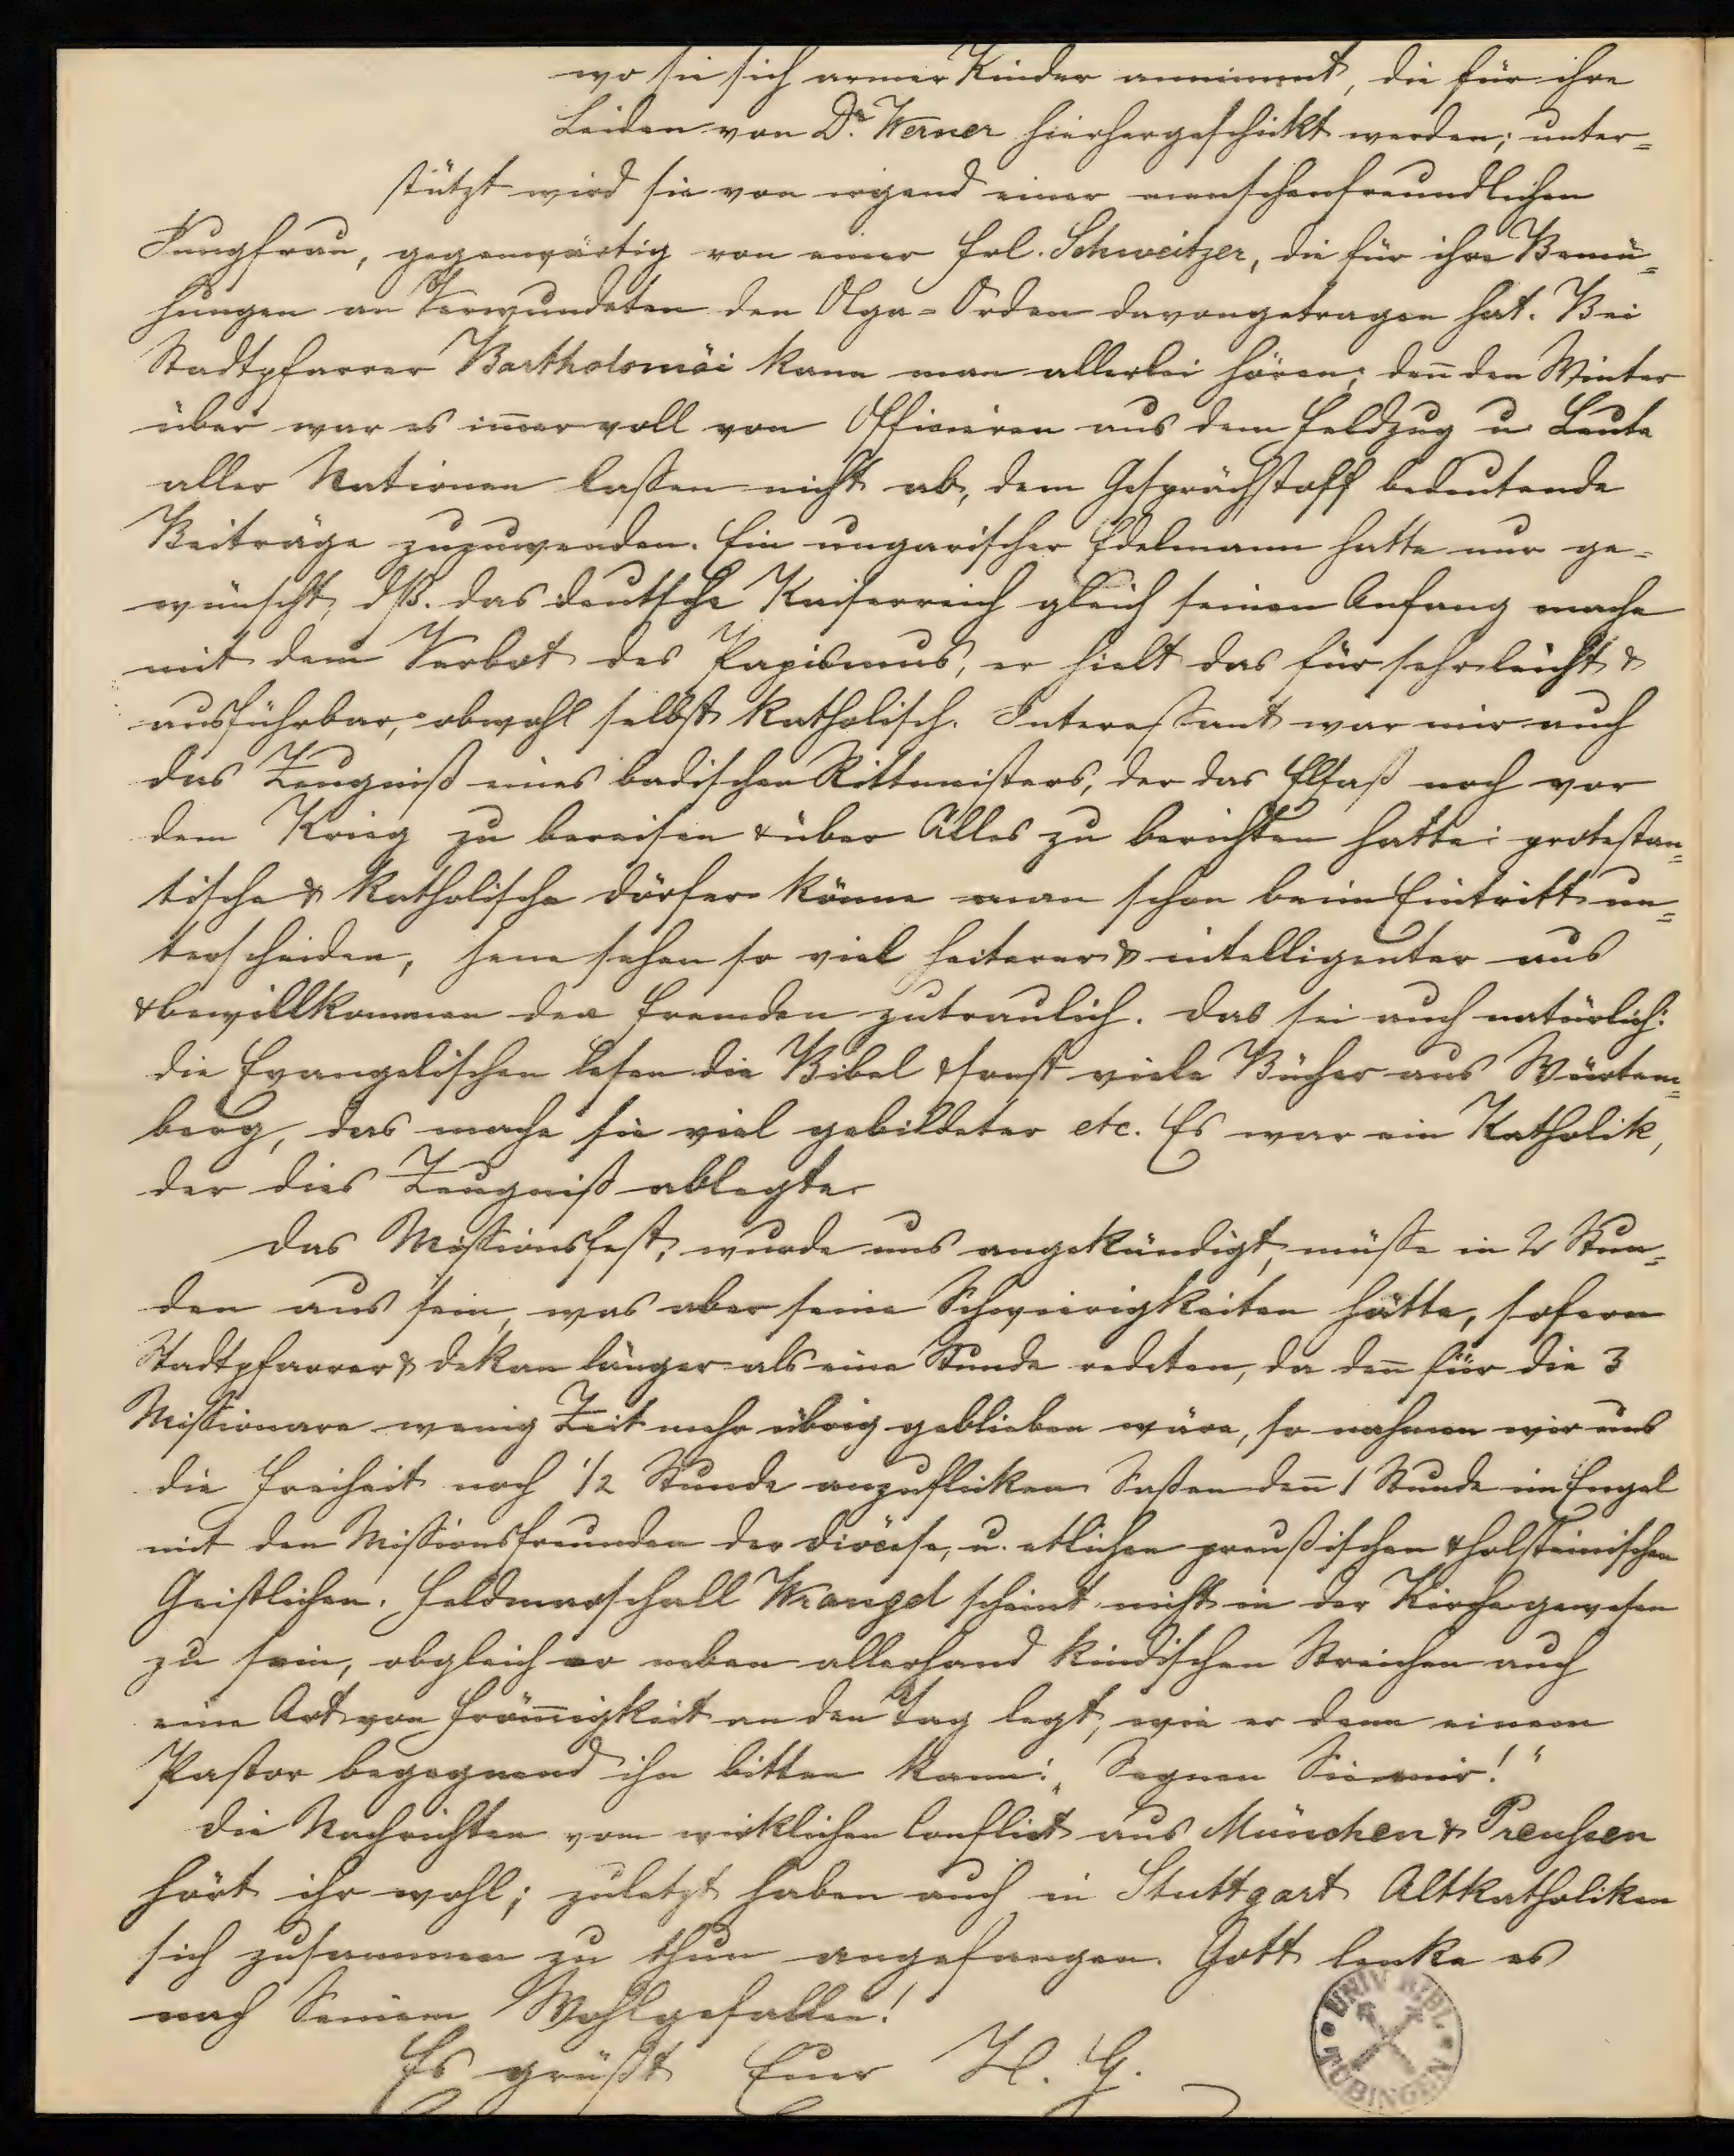 wo sie sich armer Kinder annimmt, die für ihre
Leiden von Dr. Werner hierhergeschickt werden; unter=
stützt wird sie von irgend einer menschenfreundlichen
Jungfrau, gegenwärtig von einer Frl. Schweitzer, die für ihre Bemü=
hungen an Verwundeten den Olga-Orden davongetragen hat. Bei
Stadtpfarrer Bartholomäi kann man allerlei hören; deñ den Winter
über war es im̅er voll von Officieren aus dem Feldzug u. Leute
aller Nationen lassen nicht ab, dem Gesprächstoff bedeutende
Beiträge zuzuwenden. Ein ungarischer Edelmann hatte nur ge=
wünscht, dß. das deutsche Kaiserreich gleich seinen Anfang mache
mit dem Verbot des Papismus, er hielt das für sehr leicht &
ausführbar, obwohl selbst katholisch. Interessant war mir auch
das Zeugniß eines badischen Rittmeisters, der das Elsaß noch vor
dem Krieg zu bereisen & über Alles zu berichten hatte: protestan=
tische & katholische Dörfer könne man schon beim Eintritt un=
terscheiden, jene sehen so viel heiterer & intelligenter aus
& bewillkommen den Fremden zutraulich. Das sei auch natürlich:
die Evangelischen lesen die Bibel & sonst viele Bücher aus Würtem=
berg, das mache sie viel gebildeter etc. Es war ein Katholik,
der dies Zeugniß ablegte.
Das Missionsfest, wurde uns angekündigt, müsse in 2 Stun=
den aus sein, was aber seine Schwierigkeiten hätte, sofern
Stadtpfarrer & Dekan länger als eine Stunde redeten, da deñ für die 3
Missionare wenig Zeit mehr übrig geblieben wäre, so nahmen wir uns
die Freiheit noch 1/2 Stunde anzuflicken. Saßen deñ 1 Stunde im Engel
mit den Missionsfreunden der Diöcese, u. etlichen preußischen & holsteinischen
Geistlichen. Feldmarschall Wrangel scheint nicht in der Kirche gewesen
zu sein, obgleich er neben allerhand kindischen Streichen auch
eine Art von Fröm̅igkeit an den Tag legt, wie er denn einem
Pastor begegnend ihn bitten kann: „Segnen Sie mir!“
Die Nachrichten vom wirklichen Conflict aus München & Preussen
hört ihr wohl; zuletzt haben auch in Stuttgart Altkatholiken
sich zusammen zu thun angefangen. Gott lenke es
nach Seinem Wohlgefallen!
Es grüßt Euer H. G.
UNIV. BIBL. TÜBINGEN